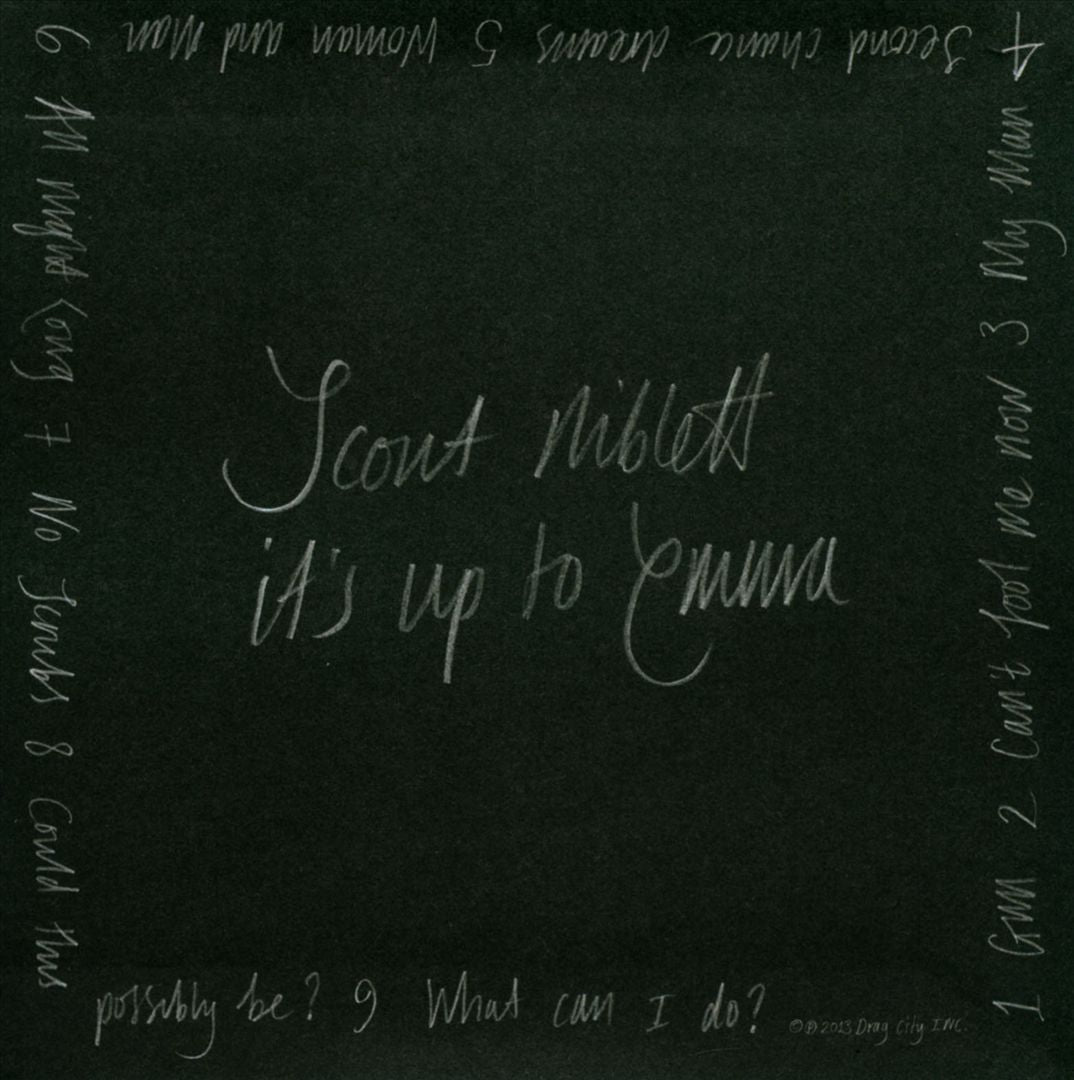 Scout Niblett
it's up to Emma
1 Gun 2 Can't fool me now 3 My Man
4 Second chance dreams 5 Woman and Man
6 All night long 7 No Scrubs 8 Could this
possibly be? 9 What can I do?
©℗2013 Drag City INC.